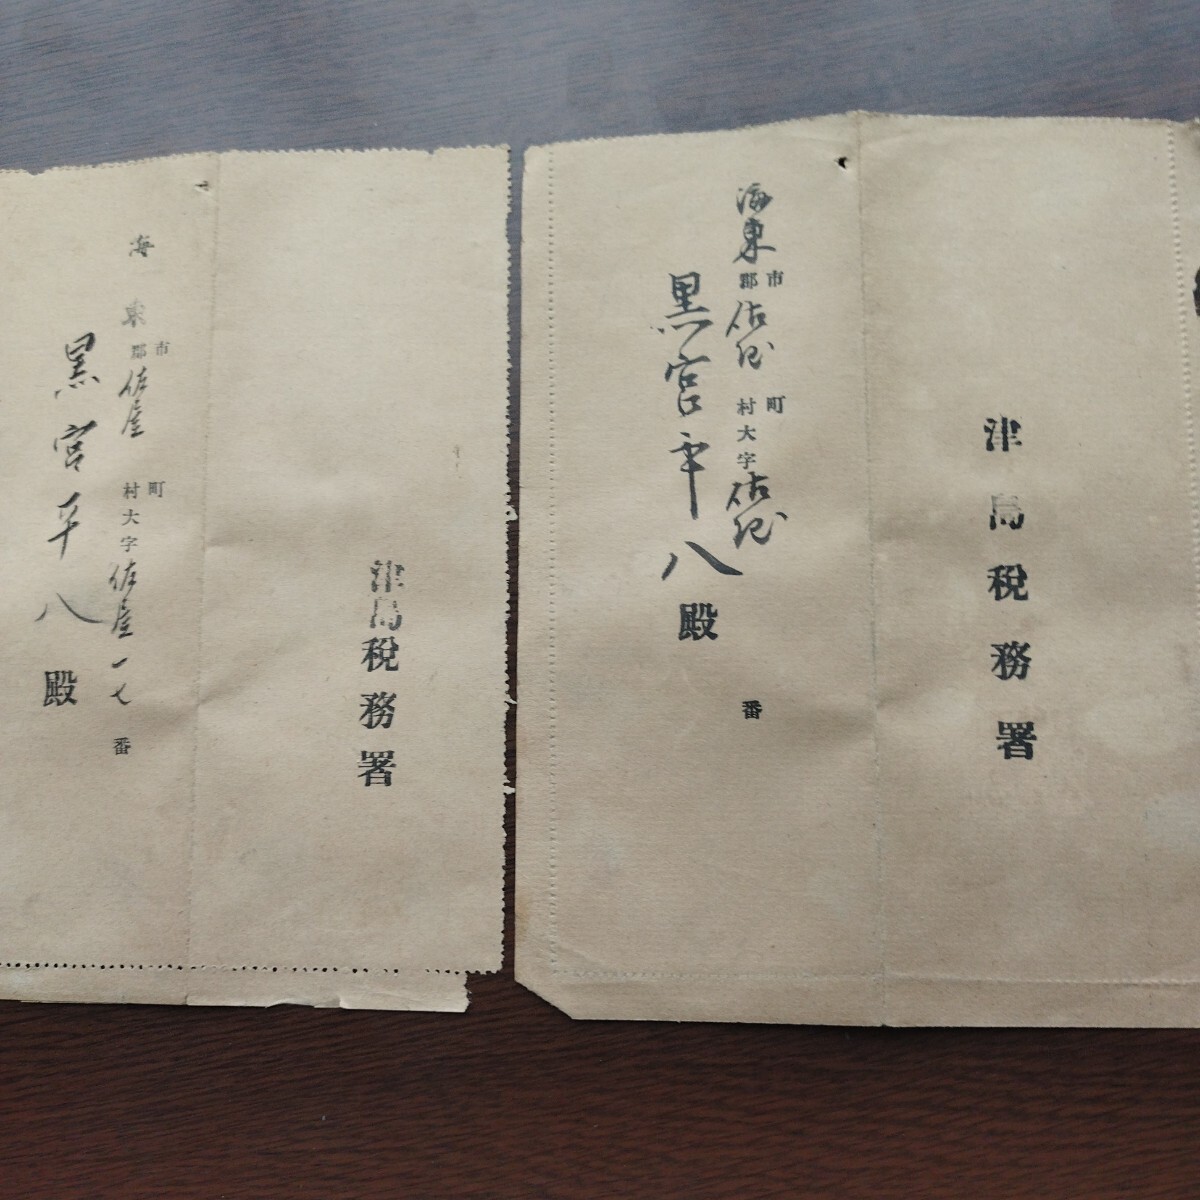 津島税務署
海東
市
郡
佐屋
町
村大字
佐屋
番
黒宮平八殿
津島税務署
海東
市
郡
佐屋
町
村大字
佐屋一七
番
黒宮平八殿